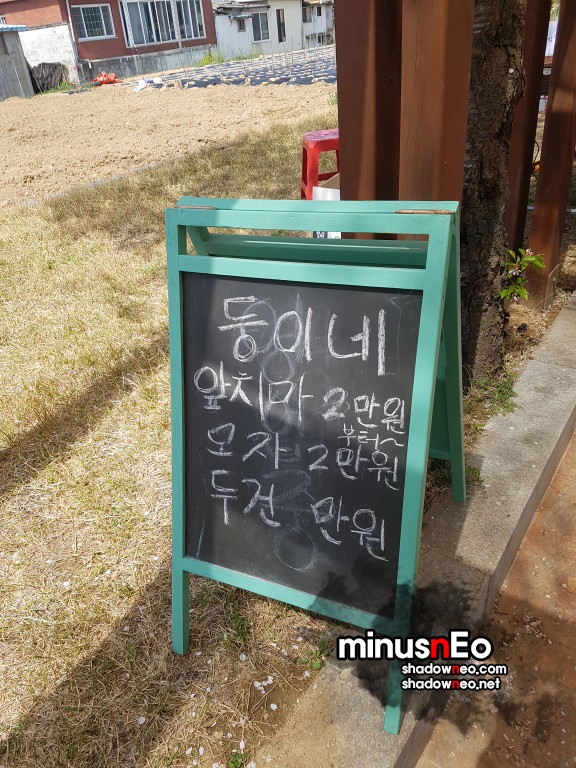 둥이네
앞치마 2만원
부터~
모자 2만원
두건 만원
minusnEo
shadowneo.com
shadowneo.net